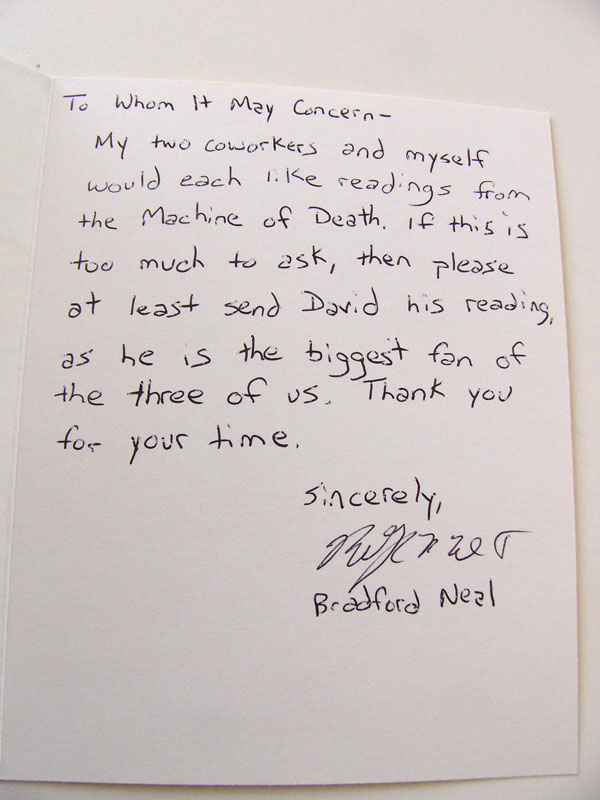 To Whom It May Concern-
My two coworkers and myself
would each like readings from
the Machine of Death. If this is
too much to ask, then please
at least send David his reading,
as he is the biggest fan of
the three of us. Thank you
for your time.
Sincerely,
Bradford Neal